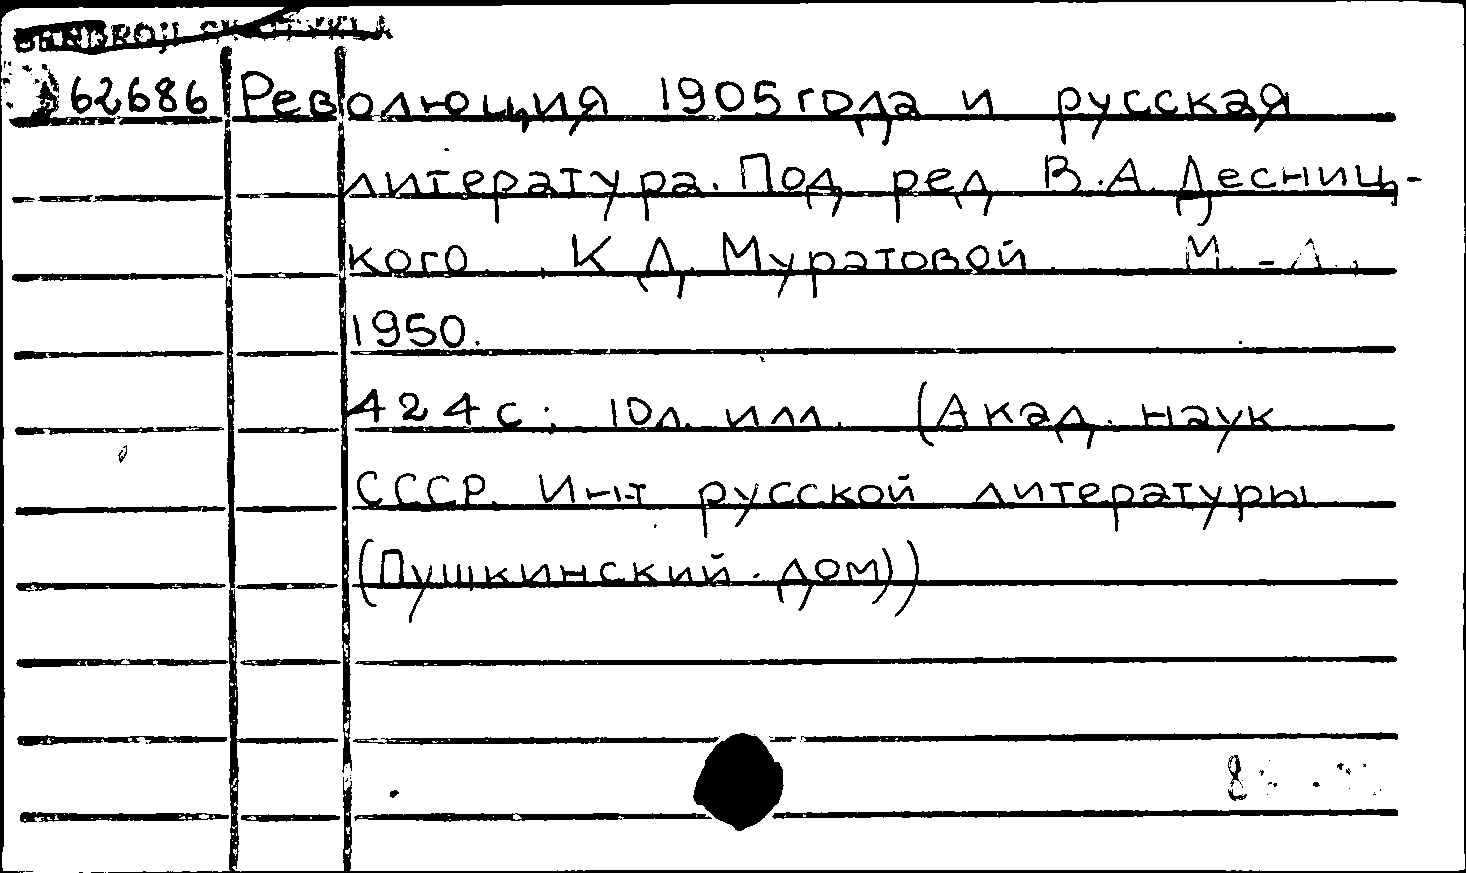 62686 Революция 1905 года и русская
литература. Под ред В.А. Десниц-
кого, К Д. Муратовой. М.-Л.,
1950.
424 с.; 10 л. илл. (Акад. наук
СССР. Ин-т русской литературы
(Пушкинский дом))